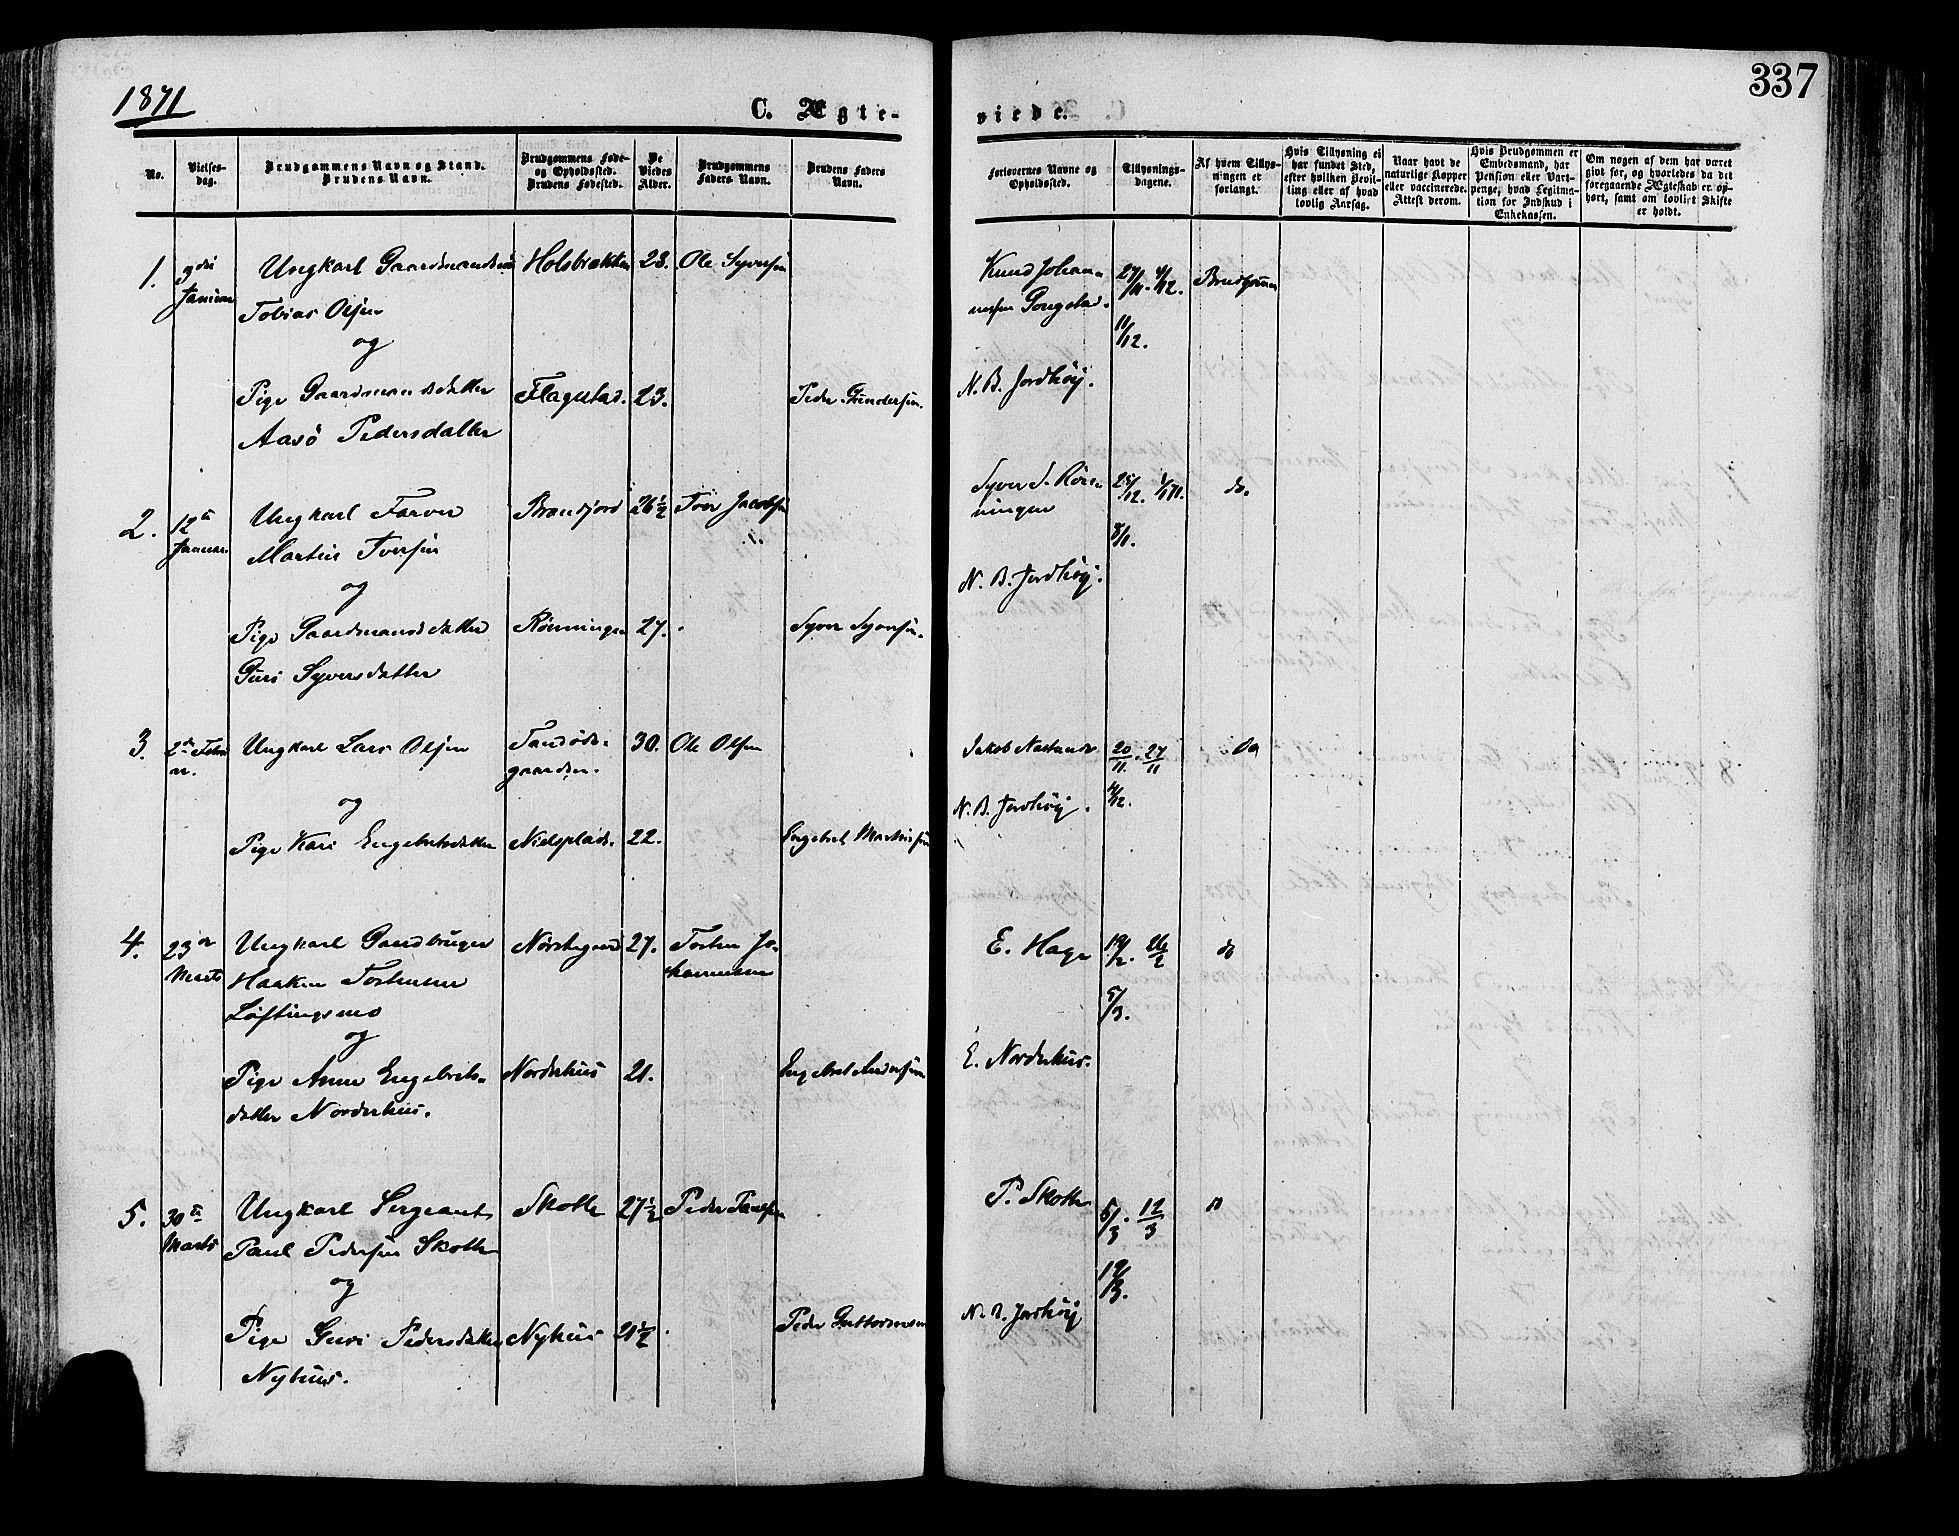 1871
337
C. Ægte-
viede.
No.
Vielses-
dag.
Brudgommens Navn og Stand.
Brudens Navn.
Brudgommens Føde-
og Opholdssted.
Brudens Fødested.
De
Viedes
Alder.
Brudgommens
Faders Navn.
Brudens Faders
Navn.
Forlovernes Navne og
Opholdssted.
Tillysnings-
dagene.
Af hvem Tillys-
ningen er
forlangt.
Hvis Tillysning ei
har fundet Sted,
efter hvilken Bevil-
ling eller af hvad
lovlig Aarsag.
Naar havt de
naturlige Kopper
eller vaccinerede.
Attest derom.
Hvis Brudgommen er
Embedsmand, har
Pension eller Vart-
penge, hvad Legitima-
tion for Indskud i
Enkekassen.
Om nogen af dem har været
gift før, og hvorledes da dit
foregaaende Ægteskab er op-
hørt, samt om lovligt Skifte
er holdt.
1.
Ungkarl Gaardmandssøn
28. Ole Syversen
Knud Johan-
27/11. 4/12.
Tobias Olsen
11/12.
og
Pige Gaardmandsdatter
Flagstad. 23.
Peder Gundersen.
N. B. Jordhøy.
Aasø Pedersdatter
2. 12te
Januar.
Ungkarl Farver
26½ Tver Jacobsen
Syver S. Røn-
ningen
do.
Martin Tversen
8/1.
og
N. B. Jordhøy.
Pige Gaardmandsdatter
Rønningen 27.
Syver Syversen.
Guri Syversdatter
3. 2den Febr
Ungkarl Lars Olsen
30. Ole Olsen
20/11. 27/11
do
gaarden.
4/12.
og
N. B. Jordhøy.
Pige Kari Engebretsdatter
Nielsplads. 22.
Engebret Martinsen
4. 23de
Marts
Ungkarl Gaardbruger
27. Torsten Jo-
hannesen
E. Hage
19/2. 26/2
do
Haaken Torstensen
5/3.
Løftingsmo
og
Pige Anne Engebrets-
Norderhus 21.
Engebret Andersen
E. Norderhus.
datter Norderhus.
5. 30te
Marts
Ungkarl Sergeant
Skotte 27½ Peder Paulsen
P. Skotte
5/3. 12/3
Paul Pedersen Skotte
19/3.
og
Pige Guri Pedersdatter
Nyhus 21½
Peder Guttormsen
N. B. Jordhøy
Nyhus.